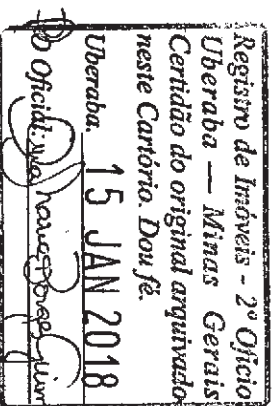 Registro de Imóveis - 2º Ofício
Uberaba — Minas Gerais
Certidão do original arquivado
neste Cartório. Dou fé.
Uberaba, 15 JAN 2018
O Oficial: